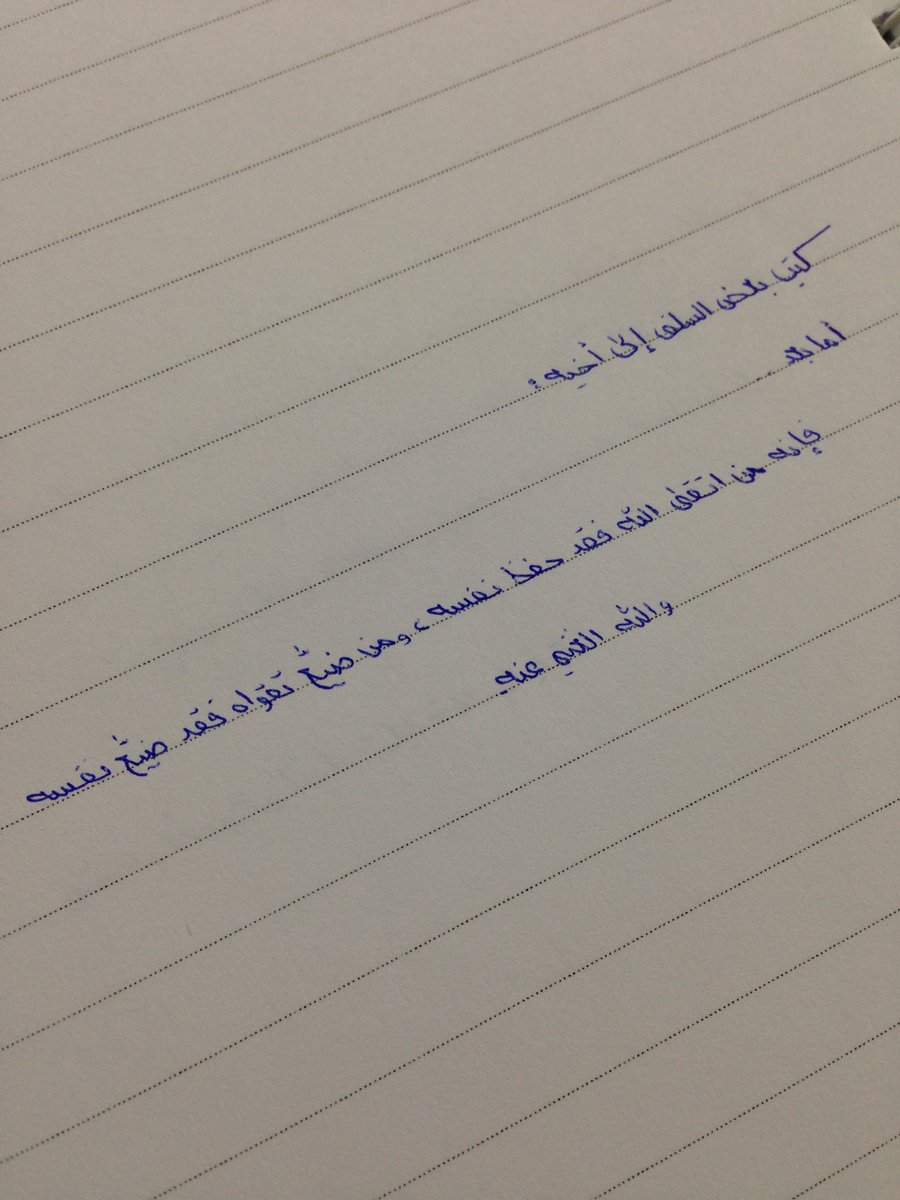 كتب بعض السلف إلى أخيه :
أما بعد ..
فإنه من اتقى الله فقد حفظ نفسه ، ومن ضيّع تقواه فقد ضيّع نفسه
والله الغني عنه